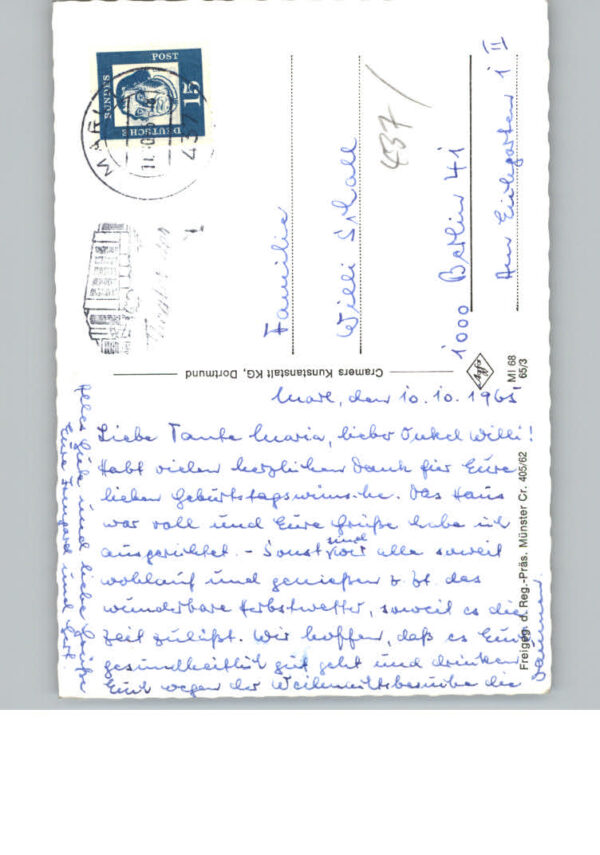 Marl, den 10.10.1965
Liebe Tante Maria, lieber Onkel Willi!
Habt vielen herzlichen Dank für Eure
lieben Geburtstagswünsche. Das Haus
war voll und Eure Grüße habe ich
ausgerichtet. - Sonst sind wir alle soweit
wohlauf und genießen z. Zt. das
wunderbare Herbstwetter, soweit es die
Zeit zuläßt. Wir hoffen, daß es Euch
gesundheitlich gut geht und drücken
Euch wegen der Weihnachtsbesuche die
Daumen.
Alles Gute und liebe Grüße
Eure Irmgard und
Familie
Willi
1000 Berlin 41
Am Eichgarten 1 II
437/
DEUTSCHE
BUNDES
POST
15
MARL
437
Cramers Kunstanstalt KG, Dortmund
MI 68
65/3
Freigeg. d. Reg.-Präs. Münster Cr. 405/62